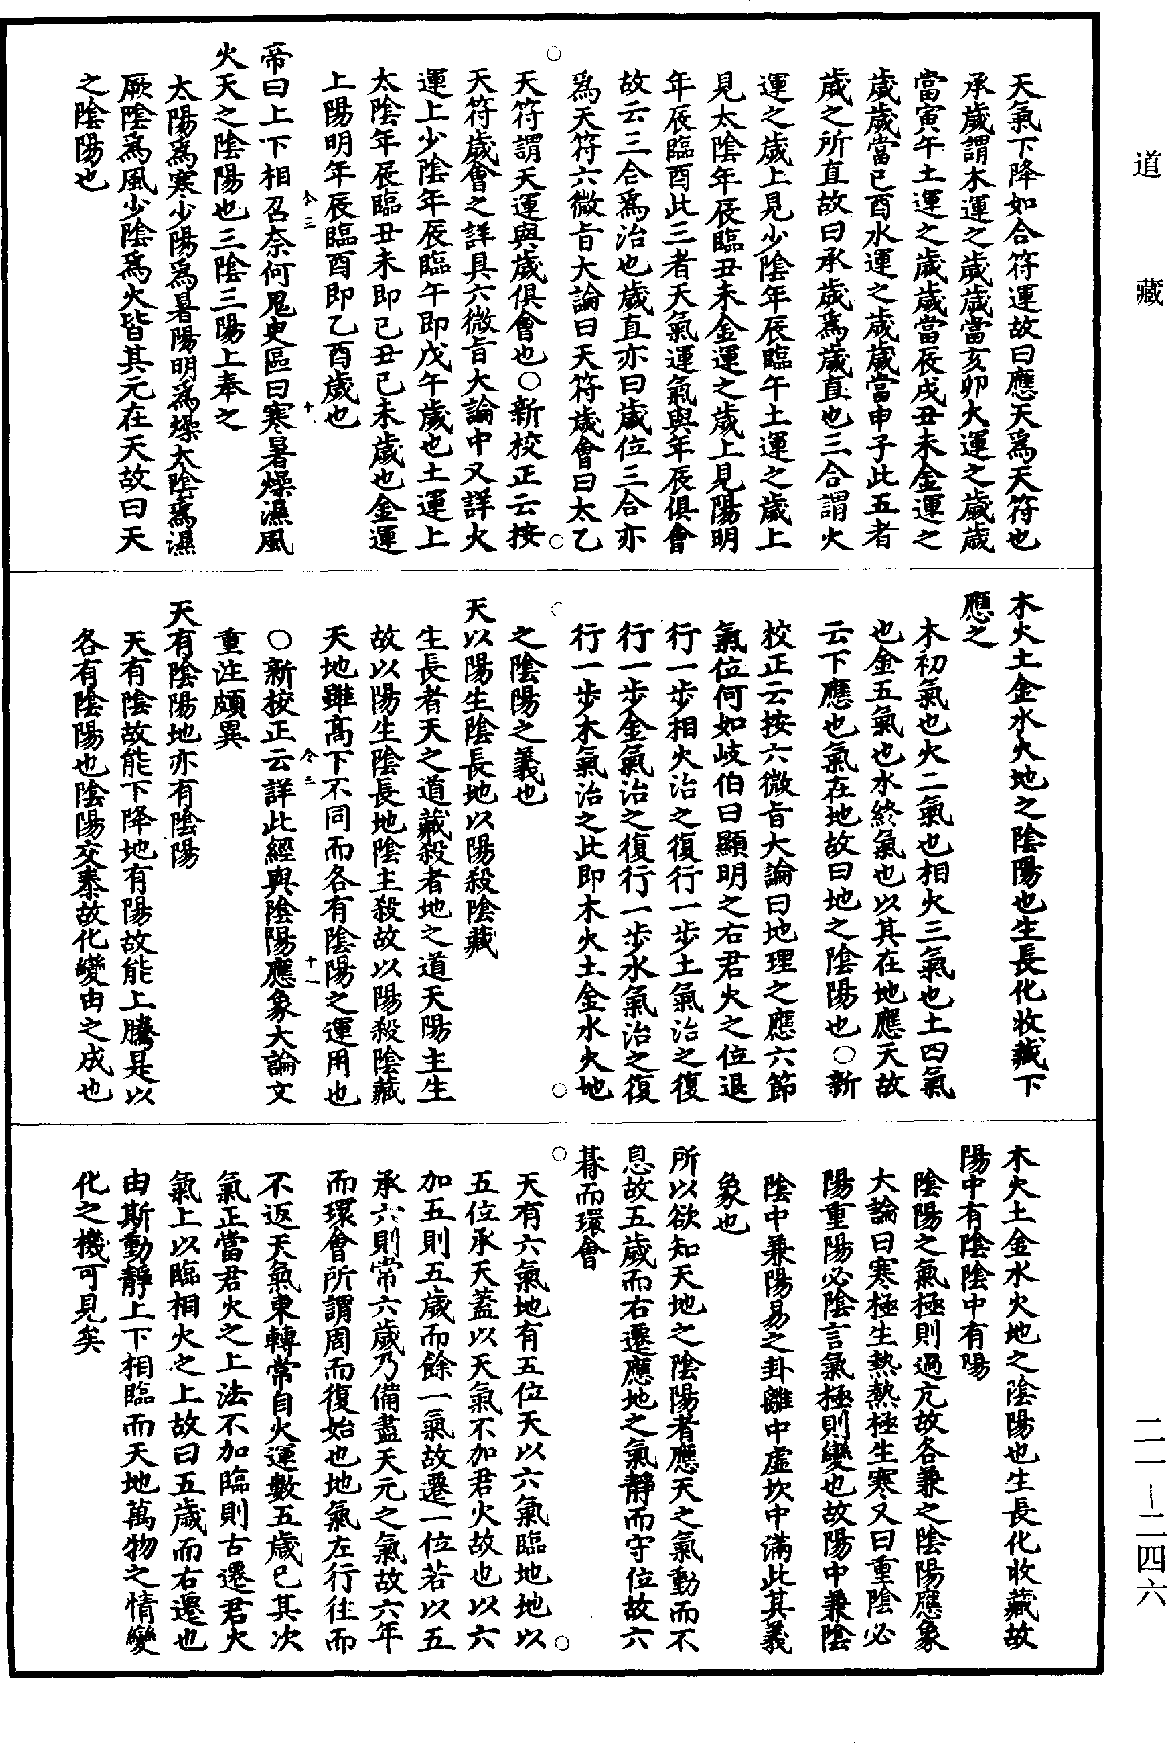 道藏
天氣下降如合符運故曰應天為天符也
承歲謂木運之歲歲當亥卯火運之歲歲
當寅午土運之歲歲當辰戌丑未金運之
歲歲當巳酉水運之歲歲當申子此五者
歲之所直故曰承歲為歲直也三合謂火
運之歲上見少陰年辰臨午土運之歲上
見太陰年辰臨丑未金運之歲上見陽明
年辰臨酉此三者天氣運氣與年辰俱會
故云三合為治也歲直亦曰歲位三合亦
為天符六微旨大論曰天符歲會曰太乙
天符謂天運與歲俱會也○新校正云按
天符歲會之詳具六微旨大論中又詳火
運上少陰年辰臨午即戊午歲也土運上
太陰年辰臨丑未即己丑己未歲也金運
上陽明年辰臨酉即乙酉歲也
帝曰上下相召奈何鬼臾區曰寒暑燥濕風
火天之陰陽也三陰三陽上奉之
太陽為寒少陽為暑陽明為燥太陰為濕
厥陰為風少陰為火皆其元在天故曰天
之陰陽也
木火土金水火地之陰陽也生長化收藏下
應之
木初氣也火二氣也相火三氣也土四氣
也金五氣也水終氣也以其在地應天故
云下應也氣在地故曰地之陰陽也○新
校正云按六微旨大論曰地理之應六節
氣位何如岐伯曰顯明之右君火之位退
行一步相火治之復行一步土氣治之復
行一步金氣治之復行一步水氣治之復
行一步木氣治之此即木火土金水火地
之陰陽之義也
天以陽生陰長地以陽殺陰藏
生長者天之道藏殺者地之道天陽主生
故以陽生陰長地陰主殺故以陽殺陰藏
天地雖高下不同而各有陰陽之運用也
○新校正云詳此經與陰陽應象大論文
重注頗異
天有陰陽地亦有陰陽
天有陰故能下降地有陽故能上騰是以
各有陰陽也陰陽交泰故化變由之成也
木火土金水火地之陰陽也生長化收藏故
陽中有陰陰中有陽
陰陽之氣極則過亢故各兼之陰陽應象
大論曰寒極生熱熱極生寒又曰重陰必
陽重陽必陰言氣極則變也故陽中兼陰
陰中兼陽易之卦離中虛坎中滿此其義
象也
所以欲知天地之陰陽者應天之氣動而不
息故五歲而右遷應地之氣靜而守位故六
朞而環會
天有六氣地有五位天以六氣臨地地以
五位承天蓋以天氣不加君火故也以六
加五則五歲而餘一氣故遷一位若以五
承六則常六歲乃備盡天元之氣故六年
而環會所謂周而復始也地氣左行往而
不返天氣東轉常自火運數五歲已其次
氣正當君火之上法不加臨則右遷君火
氣上以臨相火之上故曰五歲而右遷也
由斯動靜上下相臨而天地萬物之情變
化之機可見矣
二一—二四六